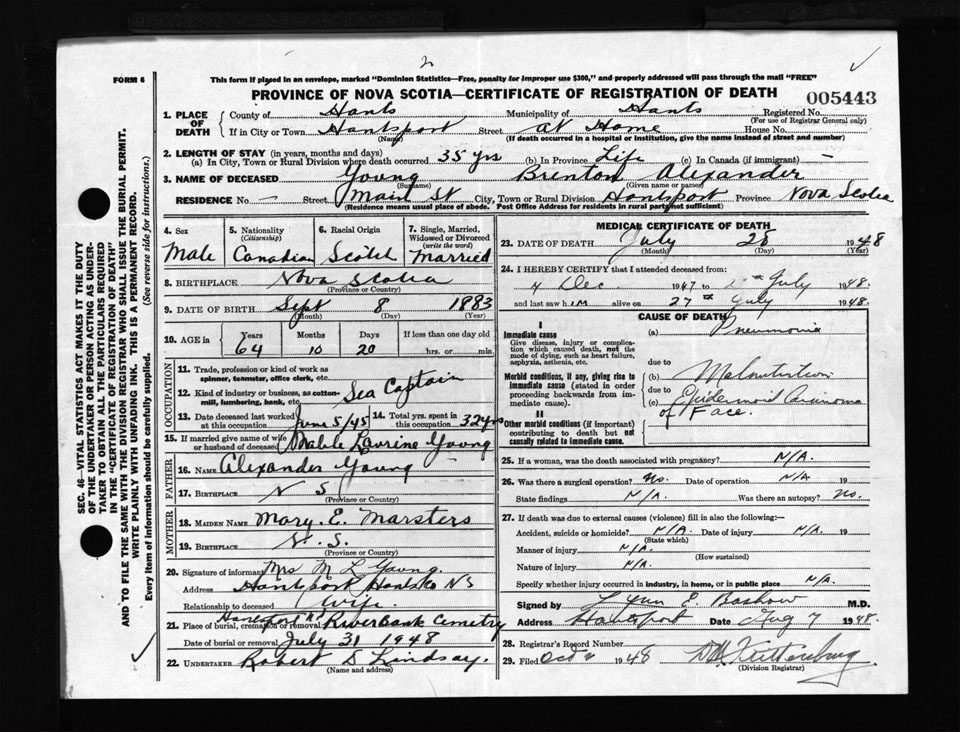 2
FORM 6
This form if placed in an envelope, marked "Dominion Statistics—Free, penalty for improper use $300," and properly addressed will pass through the mail "FREE"
PROVINCE OF NOVA SCOTIA—CERTIFICATE OF REGISTRATION OF DEATH
005443
1. PLACE OF DEATH
County of Hants Municipality of Hants Registered No.
(For use of Registrar General only)
If in City or Town Hantsport Street at Home House No.
(Name) (If death occurred in a hospital or institution, give the name instead of street and number)
2. LENGTH OF STAY (in years, months and days)
(a) In City, Town or Rural Division where death occurred 35 yrs (b) In Province Life (c) In Canada (if immigrant) —
3. NAME OF DECEASED Young Brenton Alexander
(Surname) (Given name or names)
RESIDENCE No. — Street Main St City, Town or Rural Division Hantsport Province Nova Scotia
(Residence means usual place of abode. Post Office Address for residents in rural parts not sufficient)
4. Sex
Male
5. Nationality (Citizenship)
Canadian
6. Racial Origin
Scotch
7. Single, Married, Widowed or Divorced (write the word)
Married
8. BIRTHPLACE Nova Scotia
(Province or Country)
9. DATE OF BIRTH Sept 8 1883
(Month) (Day) (Year)
10. AGE in Years Months Days If less than one day old
64 10 20 hrs. or min.
OCCUPATION
11. Trade, profession or kind of work as spinner, teamster, office clerk, etc.
12. Kind of industry or business, as cotton-mill, lumbering, bank, etc.
Sea Captain
13. Date deceased last worked at this occupation June 5/45
14. Total yrs. spent in this occupation 32 yrs
15. If married give name of wife or husband of deceased Young
FATHER
16. NAME Alexander Young
17. BIRTHPLACE N S
(Province or Country)
MOTHER
18. MAIDEN NAME Mary E. Marsters
19. BIRTHPLACE N. S.
(Province or Country)
20. Signature of informant Mrs M L Young.
Address Hantsport Hants Co NS
Relationship to deceased Wife.
21. Place of burial, cremation or removal Hantsport NS Riverbank Cemetry
Date of burial or removal July 31 1948
22. UNDERTAKER Robert S Lindsay.
(Name and address)
MEDICAL CERTIFICATE OF DEATH
23. DATE OF DEATH July 28 1948
(Month) (Day) (Year)
24. I HEREBY CERTIFY that I attended deceased from:
4 Dec 1947 to July 1948.
and last saw him alive on 27th July 1948.
CAUSE OF DEATH
I
Immediate cause
Give disease, injury or complication which caused death, not the mode of dying, such as heart failure, asphyxia, asthenia, etc.
(a) Pneumonia
due to
Morbid conditions, if any, giving rise to immediate cause (stated in order proceeding backwards from immediate cause).
(b) Malnutrition
due to
(c) Epidermoid Carcinoma of Face.
II
Other morbid conditions (if important) contributing to death but not causally related to immediate cause.
25. If a woman, was the death associated with pregnancy? N/A.
26. Was there a surgical operation? No. Date of operation N/A 19
State findings N/A. Was there an autopsy? No.
27. If death was due to external causes (violence) fill in also the following:—
Accident, suicide or homicide? N/A. Date of injury N/A. 19
(State which)
Manner of injury N/A.
(How sustained)
Nature of injury N/A.
Specify whether injury occurred in industry, in home, or in public place N/A.
Signed by Lynn E Bashow M.D.
Address Hantsport Date Aug 7 1948.
28. Registrar's Record Number
29. Filed Oct 1948
(Division Registrar)
SEC. 46—VITAL STATISTICS ACT MAKES IT THE DUTY OF THE UNDERTAKER OR PERSON ACTING AS UNDERTAKER TO OBTAIN ALL THE PARTICULARS REQUIRED IN THE "CERTIFICATE OF REGISTRATION OF DEATH" AND TO FILE THE SAME WITH THE DIVISION REGISTRAR WHO SHALL ISSUE THE BURIAL PERMIT.
WRITE PLAINLY WITH UNFADING INK. THIS IS A PERMANENT RECORD.
Every item of information should be carefully supplied. (See reverse side for instructions.)